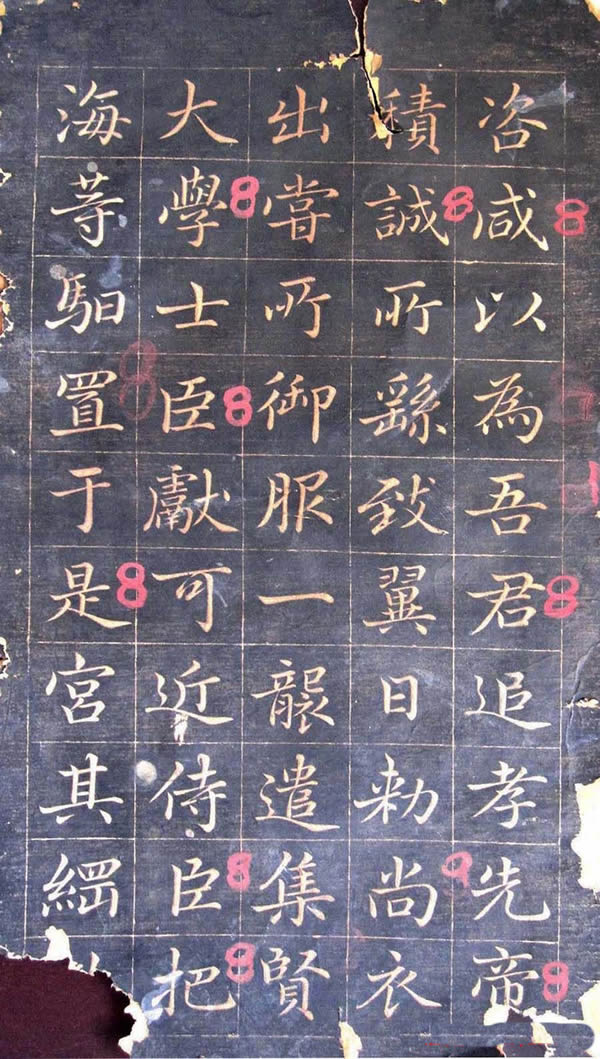 咨咸以為吾君追孝先帝
積誠所繇致翼日勅尚衣
出嘗所御服一襲遣集賢
大學士臣獻可近侍臣把
海等馹置于是宮其